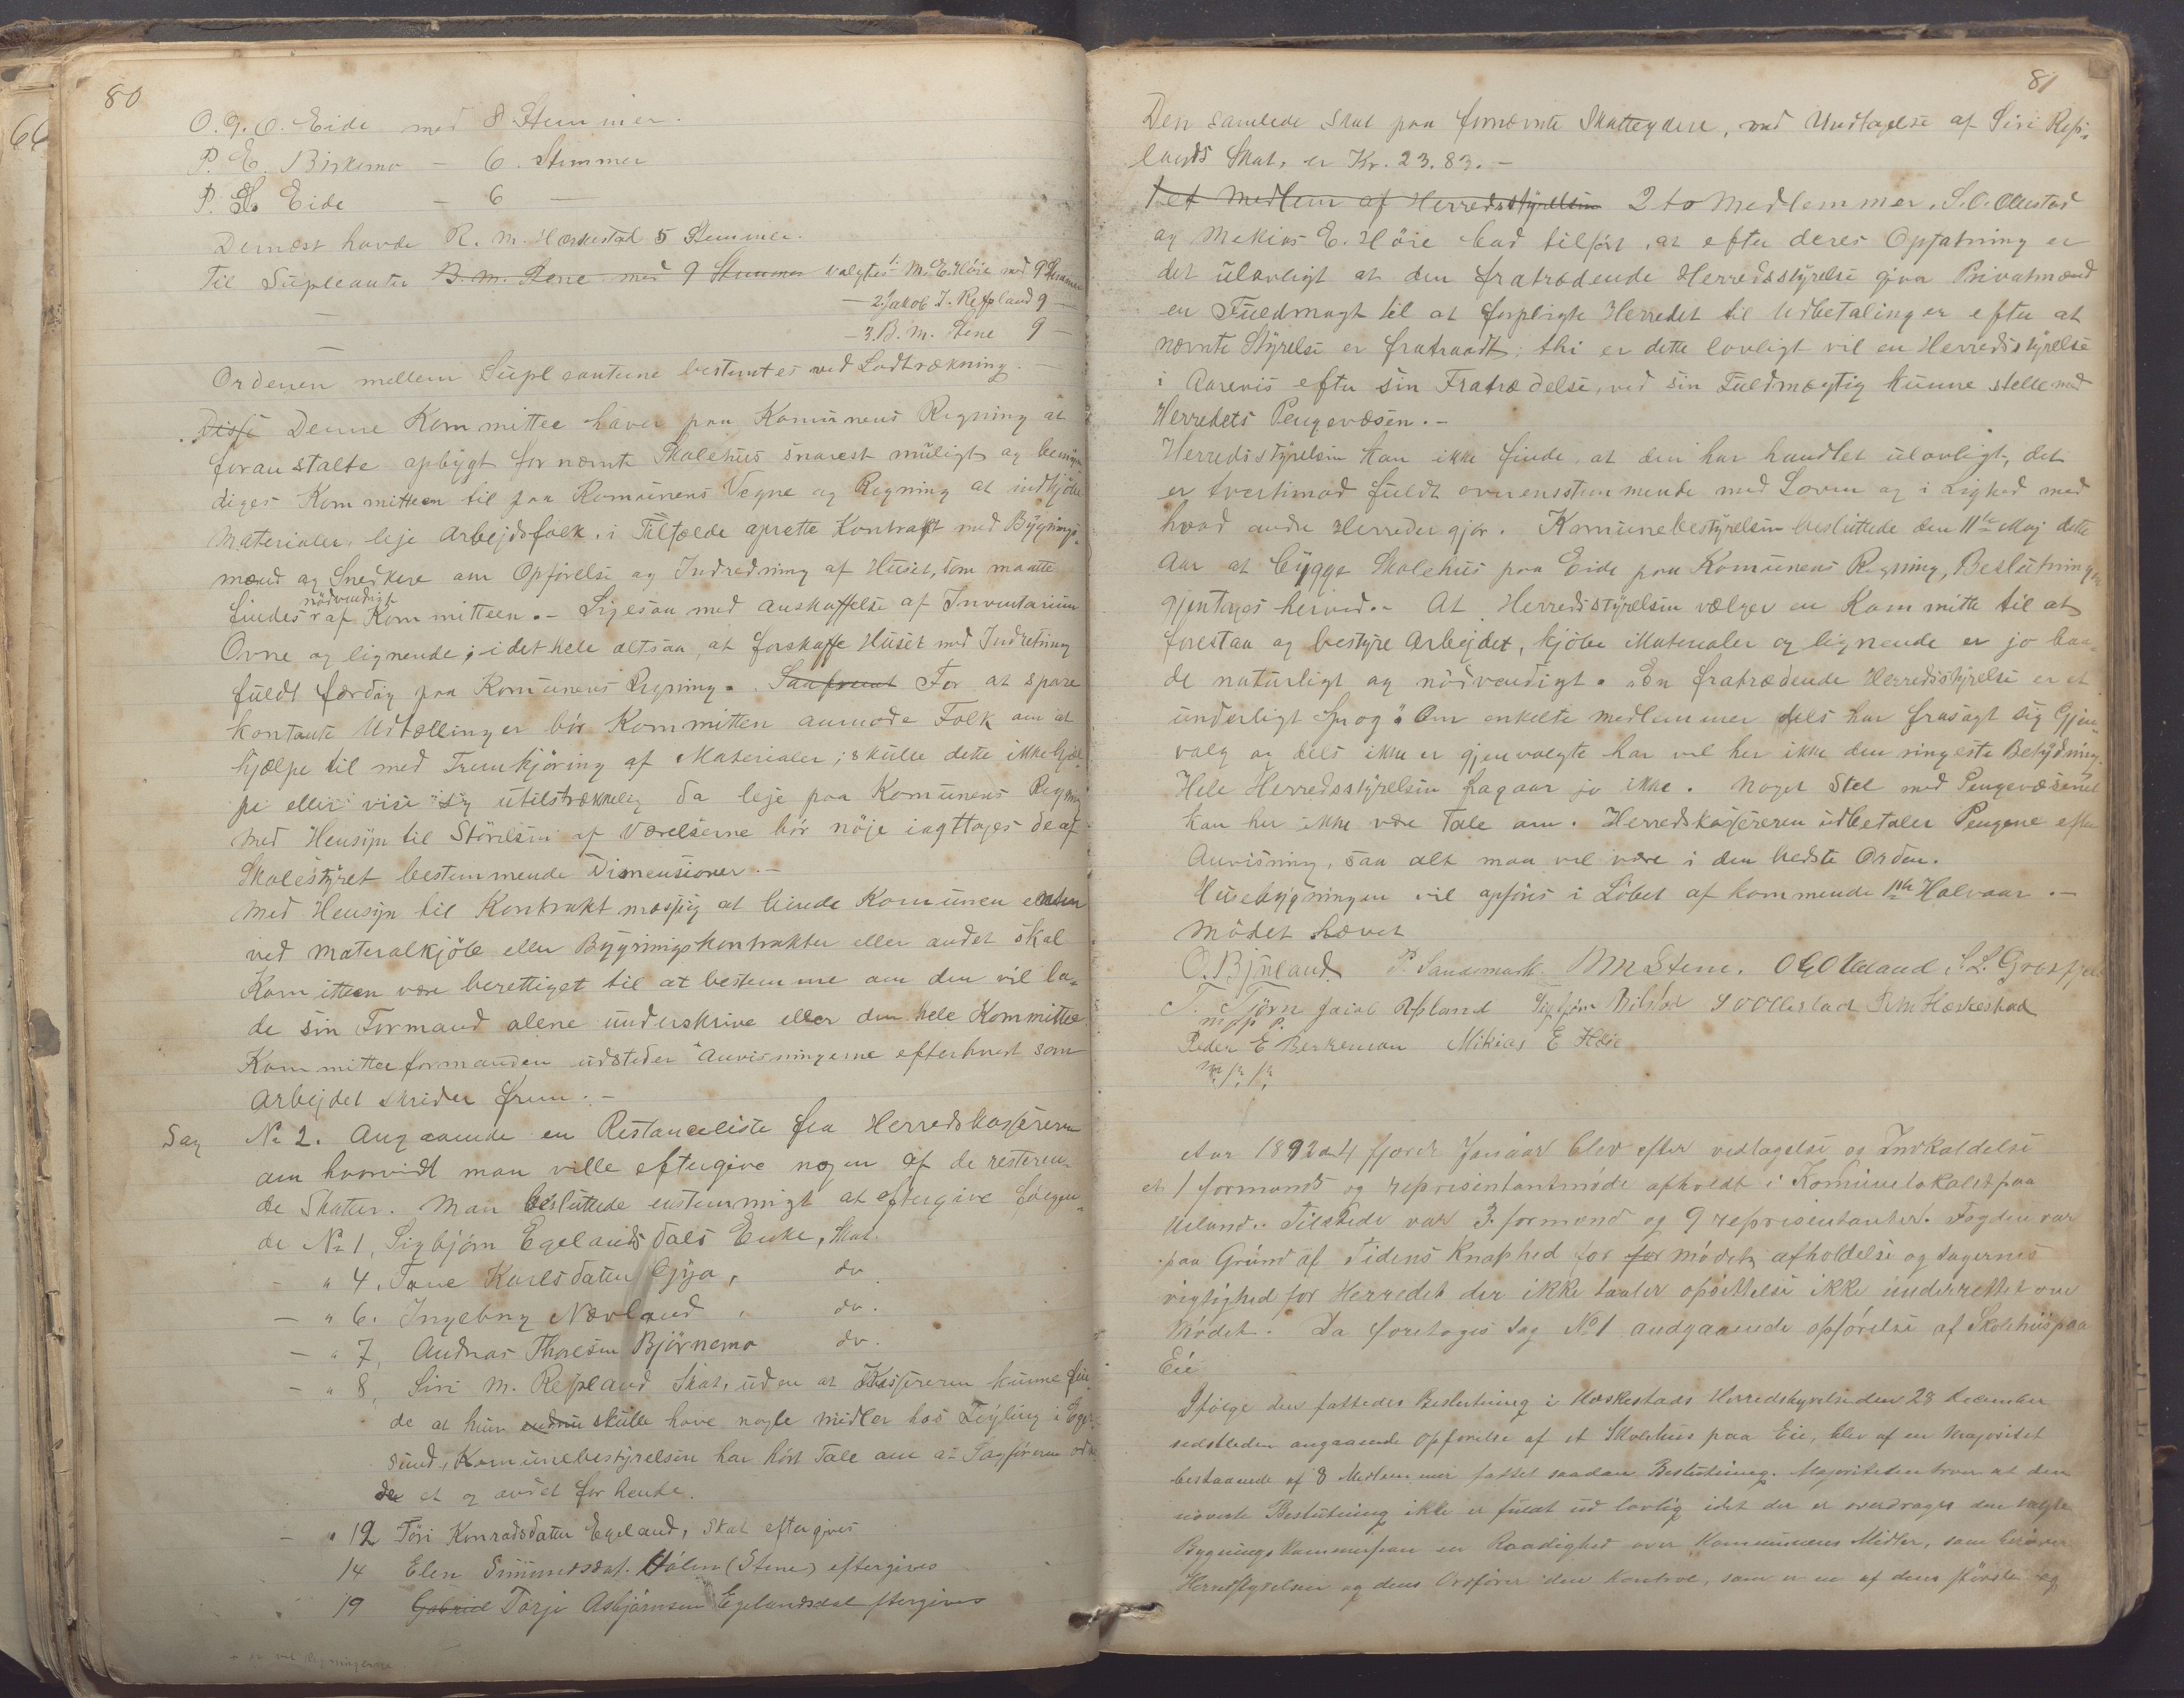 80
O. G. O. Eide med 8 Stemmer.
P. E. Birkemo - 6. Stemmer
P. Eide - 6 -
Dernæst havde R. M. Hæskestad 5 Stemmer.
Til Supleanter B. M. Stene med 9 Stemmer valgtes 1. M. E. Höie med 9 Stemmer
- 2. Jakob J. Refsland 9 -
- 3. B. M. Stene 9 -
Ordenen mellem Supleanterne bestemtes ved Lodtrækning. -
Disse Denne Kommittee haver paa Komunens Regning at
foranstalte opbygt fornævnte Skolehus snarest muligt og bemyn
diges Kommitteen til paa Komunens Vegne og Regning at indkjöbe
Materialer, leje Arbejdsfolk, i Tilfælde oprette Kontrakt med Bygnings-
mænd og Snedkere om Opförelse og Indredning af Huset, som maatte
findes nödvendigt af Kommitteen. - Ligesaa med Anskaffelse af Inventarium
Ovne og lignende; i det hele altsaa, at forskaffe Huset med Indretning
fuldt færdig paa Komunens Regning. Saafremt For at spare
kontante Udtællinger bör Kommitten anmode Folk om at
hjælpe til med Fremkjöring af Materialer; skulle dette ikke hjæl-
pe eller vise sig utilstrækkelig da leje paa Komunens Regning
Med Hensyn til Störelsen af Værelserne bör nöje iagttages de af
Skolestyret bestemmende Dimensioner. -
Med Hensyn til Kontraktmæssig at binde Komunen enten
ved Materalkjöb eller Bygningskontrakter eller andet skal
Komitteen være berettiget til at bestemme om den vil la-
de sin Formand alene underskrive eller den hele Kommittee
Kommitteeformanden udsteder Anvisningerne efterhvert som
Arbejdet skrider frem. -
Sag No 2. Angaaende en Restanceliste fra Herredskassereren
om hvorvidt man ville eftergive nogen af de resteren-
de Skatter. Man besluttede enstemmigt at eftergive fölgen-
de No 1, Sigbjörn Egelandsdals Enke, Skat.
- " 4, Tone Karlsdatter Gya, do
- " 6. Ingeborg Nævland, do.
- " 7, Andreas Thorsen Björnemo do.
- " 8, Siri M. Refsland Skat, uden at Kassereren kunne fin
de at hun endnu skulle have nogle midler hos Feyling i Eger-
sund, Komunebestyrelsen har hört Tale om at Sagföreren
et og andet for hende.
- " 12 Töri Konradsdatter Egeland, Skat eftergives
14 Elen Simundsdat. Hölen (Stene) eftergives
19 Gabriel Torje Asbjörnsen Egelandsdal eftergives
81
Den samlede Skat paa fornævnte Skatteydere, med Undtagelse af Siri Refs-
lands Skat, er Kr. 23.83. -
1 et Medlem af Herredsstyrelsen 2 to Medlemmer, S. O. Ollestad
og Mekias E. Höie bad tilført, at efter deres Opfatning er
det ulovligt at den fratrædende Herredsstyrelse giver Privatmænd
en Fuldmagt til at forpligte Herredet til Udbetalinger efter at
nævnte Styrelse er fratraadt; thi er dette lovligt vil en Herredsstyrelse
i Aarevis efter sin Fratrædelse, ved sin Fuldmægtig kunne stelle med
Herredets Pengevæsen. -
Herredsstyrelsen kan ikke finde, at den har handlet ulovligt, det
er tvertimod fuldt overensstemmende med Loven og i Lighed med
hvad andre Herreder gjør. Komunebestyrelsen besluttede den 11te Maj dette
Aar at bygge Skolehus paa Eide paa Komunens Regning, Beslutningen
gjentages herved. - At Herredsstyrelsen vælger en Kommitte til at
forestaa og bestyre Arbejdet, kjöbe Materialer og lignende er jo baa-
de naturligt og nödvendigt. "En fratrædende Herredsstyrelse er et
underligt Sprog". Om enkelte medlemmer dels har frasagt sig Gjen-
valg og dels ikke er gjenvalgte har vel her ikke den ringeste Betydning.
Hele Herredsstyrelsen fragaar jo ikke. Noget Stel med Pengevæsenet
kan her ikke være Tale om. Herredskassereren udbetaler Pengene efter
Anvisning, saa alt maa vel være i den bedste Orden.
Husebygningen vil opföres i Löbet af kommende 1ste Halvaar. -
Mödet hævet
O. Bjuland P. Sandsmark BM Stene. O G O Ueland, S. L. Grøsfjeld
T. Tjörn Jacob Refsland Sigbjørn Birkeland S O Ollestad R M Hæskestad
m. p. p.
Peder E Berkemoen Mikias E Høie
m. p. p.
Aar 1892 d 4 fjerde Januar blev efter vedtagelse og Indkaldelse
et 1 formands og representantmöde afholdt i Komunelokalet paa
Ueland. Tilstede var 3. formænd og 9 representanter. Fogden var
paa Grund af Tidens Knaphed for for Mödets afholdelse og sagernes
vigtighed for Herredet der ikke taaler opsættelse ikke underrettet om
Mödet. Da foretoges Sag No 1 andgaaende opförelse af Skolehus paa
Eie
Ifölge den fattedes Beslutning i Heskestads Herredsstyrelse den 28 December
sidstleden angaaende Opförelse af et Skolehus paa Eie, blev af en Majoritet
bestaaende af 8 Medlemmer fattet saadan Beslutning. Majoriteten tror at den
nævnte Beslutning ikke er fuldt ud lovlig idet der er overdraget den valgte
Bygningskommission en Raadighed over Kommunens Midler, som beröver
Herredsstyrelsen og dens Ordförer den Kontrol, som er en af dens störste og